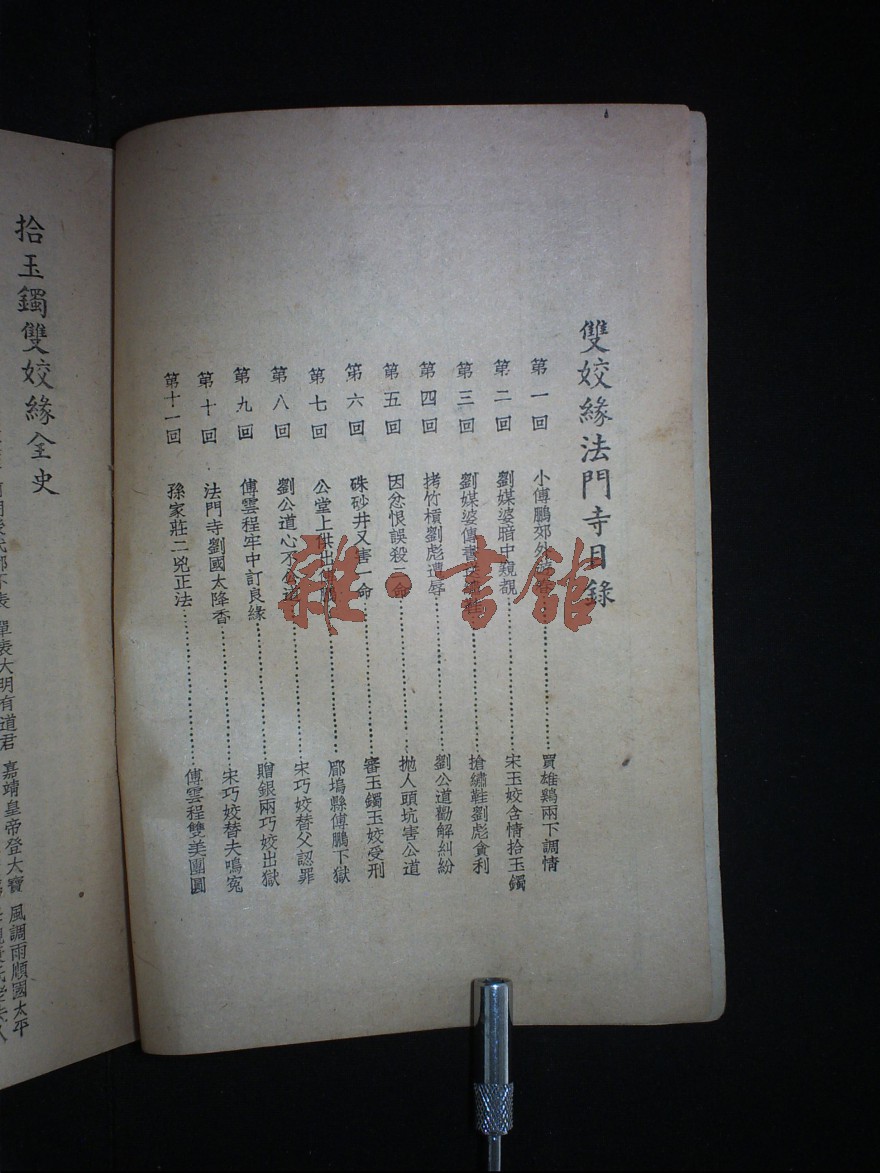 雙姣緣法門寺目錄
第一回 小傅鵬郊外……………賈雄鷄兩下調情
第二回 劉媒婆暗中窺覷……………宋玉姣含情拾玉鐲
第三回 劉媒婆傳書……………搶繡鞋劉彪貪利
第四回 拷竹槓劉彪遭辱……………劉公道勸解糾紛
第五回 因忿恨誤殺二命……………拋人頭坑害公道
第六回 硃砂井又害一命……………審玉鐲玉姣受刑
第七回 公堂上供出……………郿塢縣傅鵬下獄
第八回 劉公道心不公道……………宋巧姣替父認罪
第九回 傅雲程牢中訂良緣……………贈銀兩巧姣出獄
第十回 法門寺劉國太降香……………宋巧姣替夫鳴冤
第十一回 孫家莊二兇正法……………傅雲程雙美團圓
拾玉鐲雙姣緣全史
單表大明有道君 嘉靖皇帝登大寶 風調雨順國太平
雜·書館